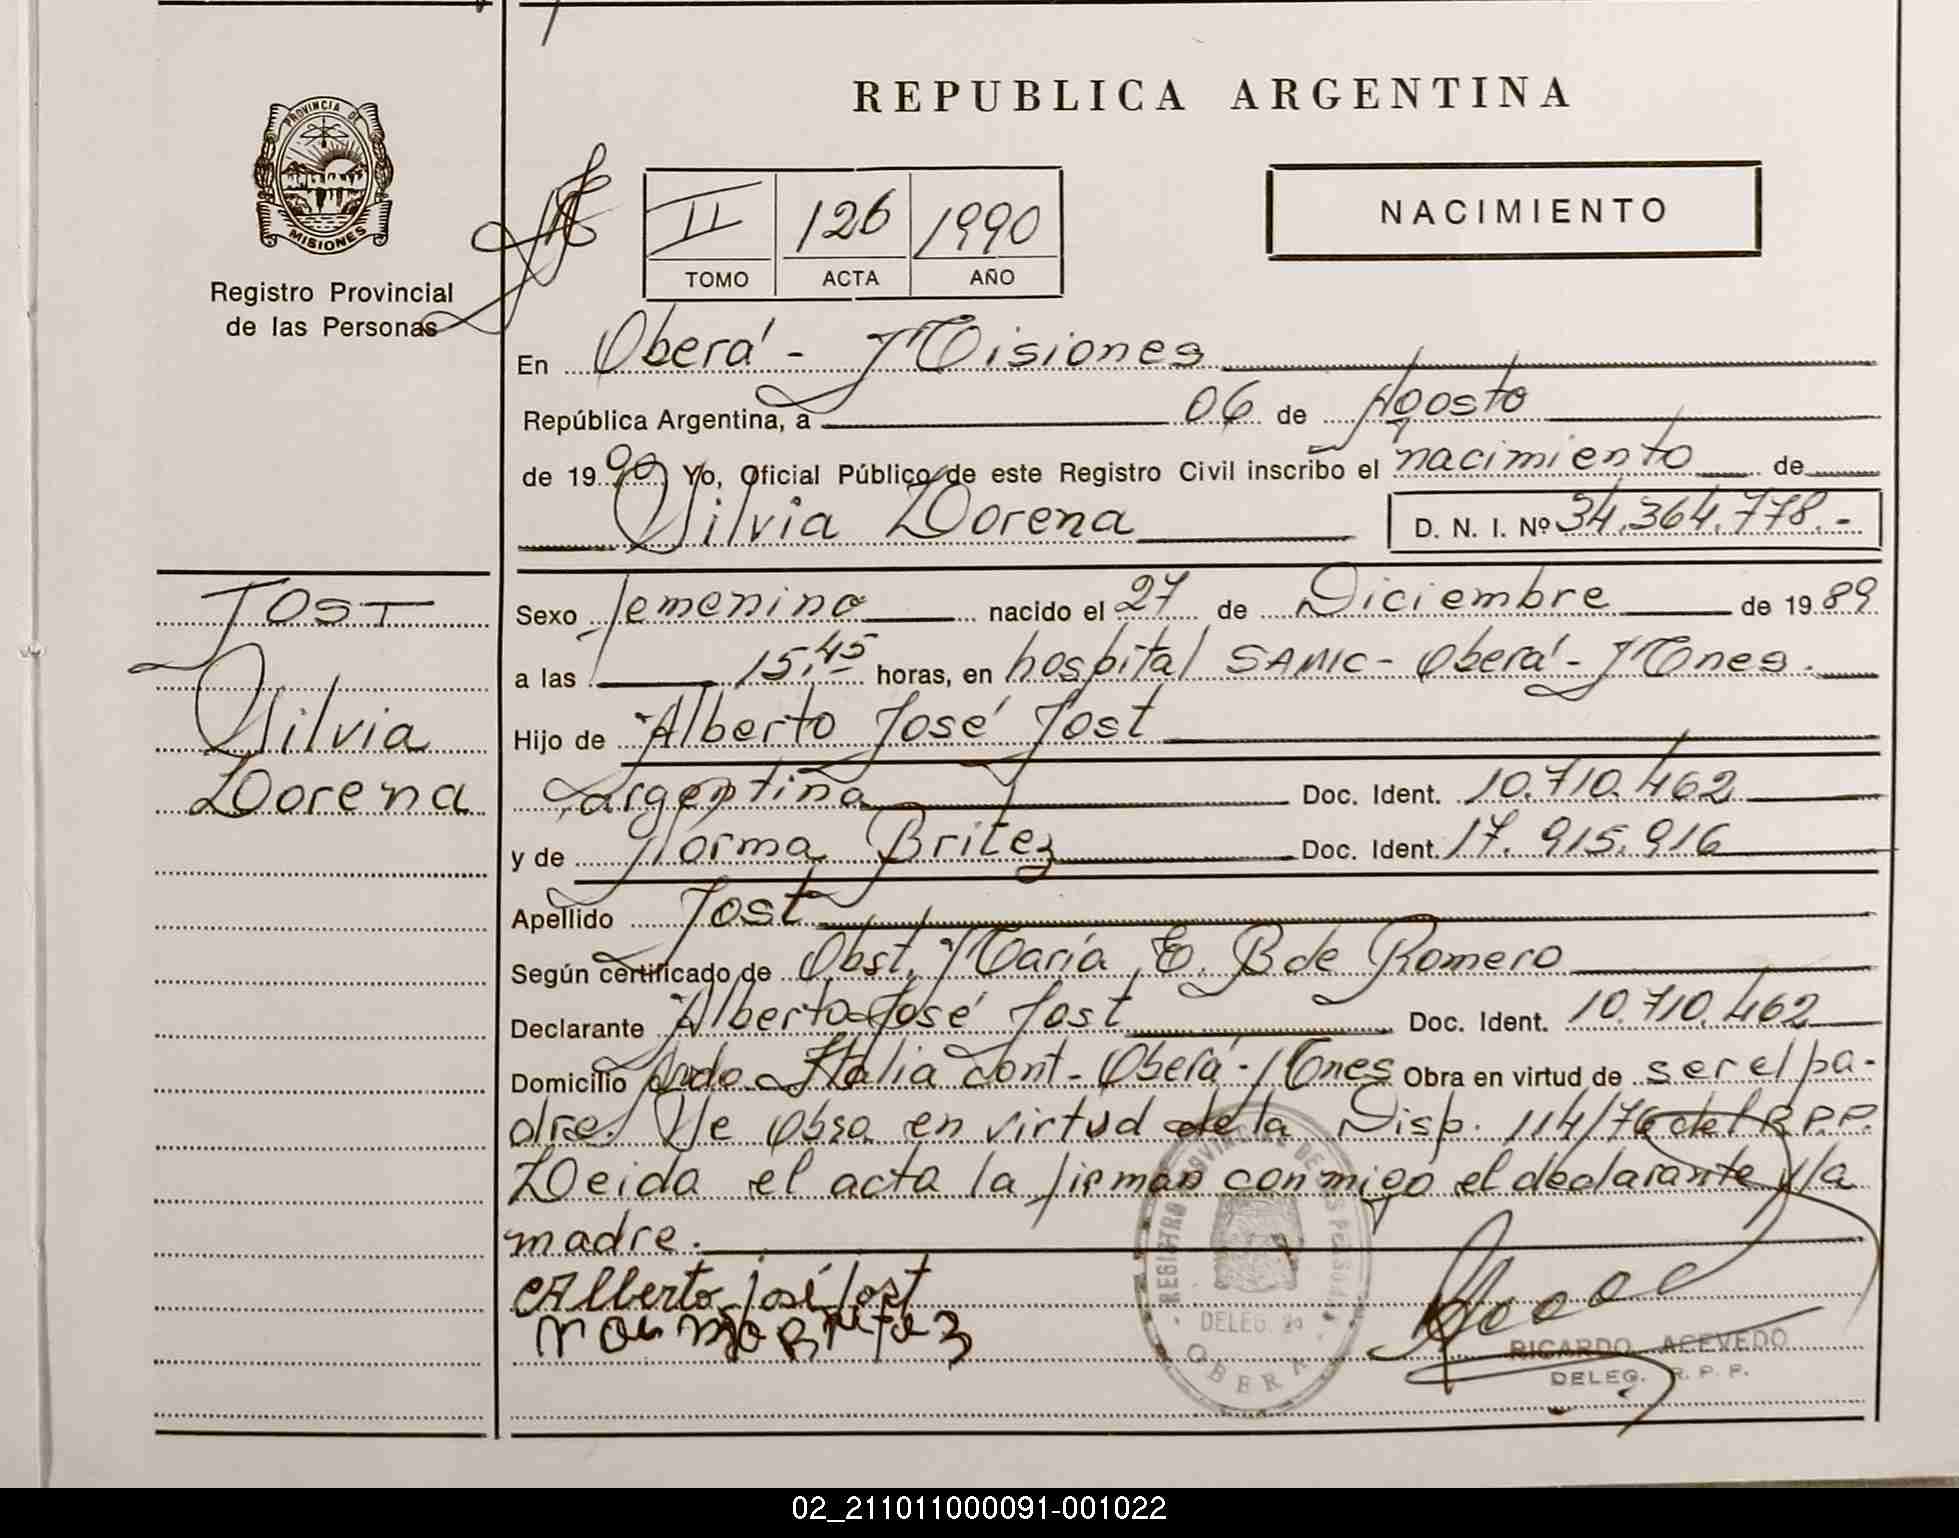 REPUBLICA ARGENTINA
PROVINCIA DE MISIONES
Registro Provincial
de las Personas
II 126 1990
TOMO ACTA AÑO
NACIMIENTO
En Oberá - Misiones
República Argentina, a 06 de Agosto
de 1990 Yo, Oficial Público de este Registro Civil inscribo el nacimiento de
Silvia Lorena D. N. I. Nº 34.364.778.-
JOST
Silvia
Lorena
Sexo femenino nacido el 27 de Diciembre de 1989
a las 15,45 horas, en hospital SAMIC - Oberá - Mnes.
Hijo de Alberto José Jost
Argentina Doc. Ident. 10.710.462
y de Norma Britez Doc. Ident. 17.915.916
Apellido Jost
Según certificado de Obst. María E. B de Romero
Declarante Alberto José Jost Doc. Ident. 10.710.462
Domicilio Italia cont - Oberá - Mnes Obra en virtud de ser el pa-
dre. Se obra en virtud de la Disp. 114/76 del R.P.P.
Leida el acta la firman conmigo el declarante y la
madre.
Alberto josé Jost
norma Britez
REGISTRO PROVINCIAL DE LAS PERSONAS
DELEG.
OBERA
RICARDO ACEVEDO
DELEG. R. P. P.
02_211011000091-001022